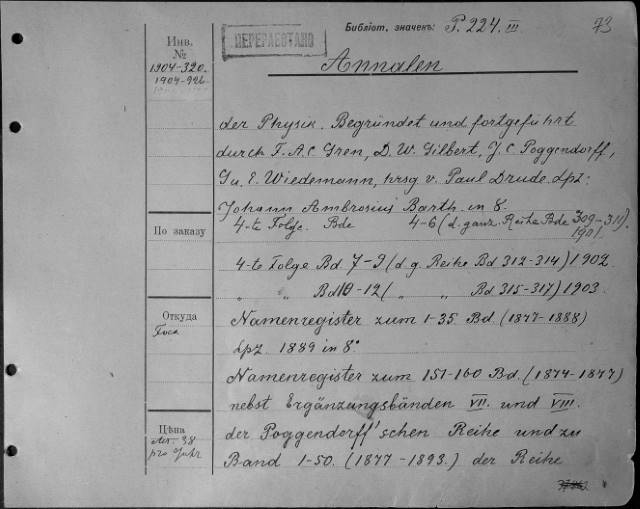 Библіот. значекъ: P. 224. III
73
ПЕРЕРАБОТАНО
Инв.
№
1904-320.
1904-926
Annalen
der Physik. Begründet und fortgeführt
durch F. A. C. Gren, L. W. Gilbert, J. C. Poggendorff,
G. u. E. Wiedemann, hrsg. v. Paul Drude. Lpz:
Johann Ambrosius Barth. in 8.
4-te Folge. Bde 4-6 (d. ganz. Reihe Bde 309-311)
1901.
По заказу
4-te Folge Bd. 7-9 (d. g. Reihe Bd 312-314) 1902
" " Bd 10-12 ( " " Bd 315-317) 1903.
Откуда
Namenregister zum 1-35. Bd. (1877-1888)
Lpz. 1889 in 8°
Namenregister zum 151-160 Bd. (1874-1877)
nebst Ergänzungsbänden VII. und VIII.
Цѣна
38
pro Jahr
der Poggendorff'schen Reihe und zu
Band 1-50. (1877-1893.) der Reihe